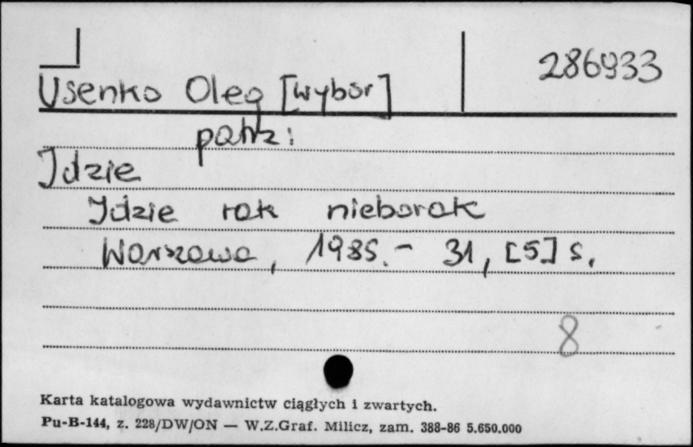 286933
Usenko Oleg [wybór]
patrz:
Idzie
Idzie rak nieborak
Warszawa, 1985.- 31, [5] s.
8
Karta katalogowa wydawnictw ciągłych i zwartych.
Pu-B-144, z. 228/DW/ON — W.Z.Graf. Milicz, zam. 388-86 5.650.000